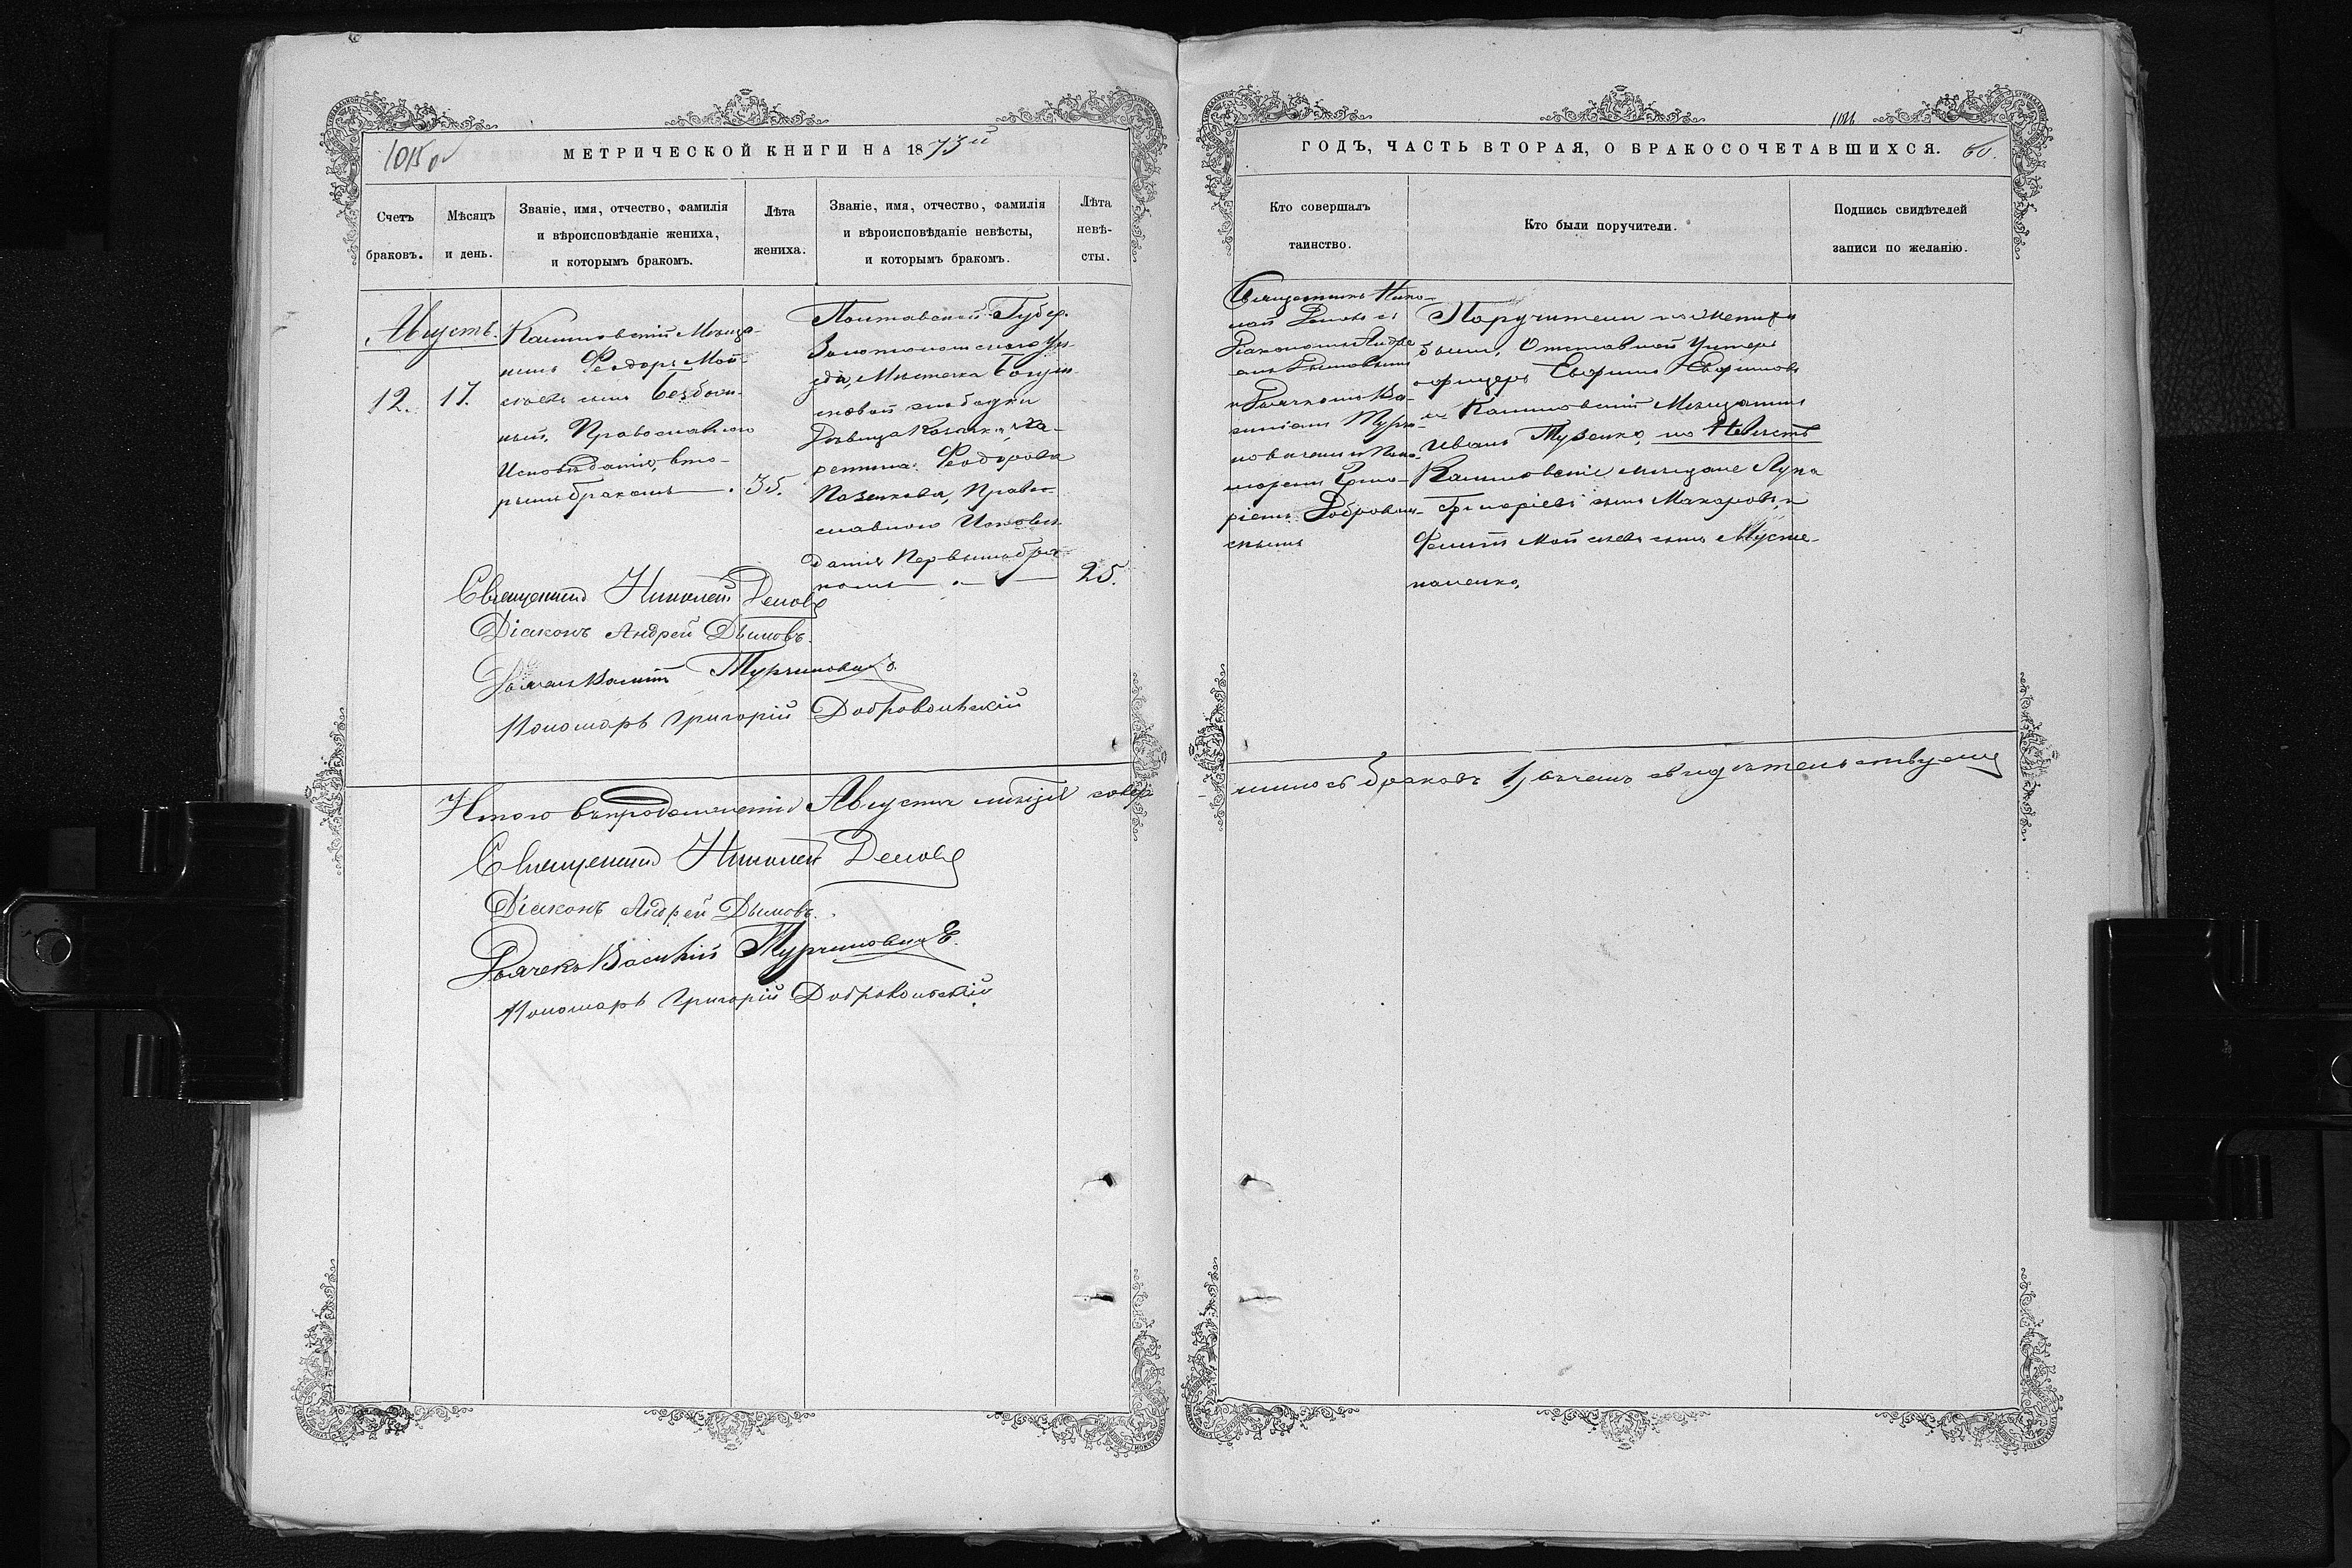 1015 об
МЕТРИЧЕСКОЙ КНИГИ НА 1873й
Счетъ браковъ.
Мѣсяцъ и день.
Званіе, имя, отчество, фамилія
и вѣроисповѣданіе жениха,
и которымъ бракомъ.
Лѣта
жениха.
Званіе, имя, отчество, фамилія
и вѣроисповѣданіе невѣсты,
и которымъ бракомъ.
Лѣта
невѣ-
сты.
Августъ.
12. 17.
Мѣща-
нинъ Феодоръ Мой-
сѣевъ сынъ Безбоч-
ный, Православнаго
Исповѣданія, вто-
рымъ бракомъ 35.
Полтавской Губер.
Золотоношскаго Уѣ-
зда, Мѣстечка
слободки
Дѣвица Козачка, Ха-
ретина Феодорова
Позенкова, Право-
славнаго Исповѣ-
данія Первымъ бра-
комъ 25.
Священникъ Николай Демовъ
Діаконъ Андрей Дымовъ.
Дьячекъ Василій Турчиновичъ.
Пономарь Григорій Добровольскій
Итого въ продолженіи Августа мѣсяца совер
Священникъ Николай Демовъ
Діаконъ Андрей Дымовъ.
Дьячекъ Василій Турчиновичъ.
Пономарь Григорій Добровольскій
1016
ГОДЪ, ЧАСТЬ ВТОРАЯ, О БРАКОСОЧЕТАВШИХСЯ. 60.
Кто совершалъ
таинство.
Кто были поручители.
Подпись свидѣтелей
записи по желанію.
Священникъ Нико-
лай Демовъ съ
Діакономъ Андре
емъ Дымовымъ
и Дьячкомъ Ва-
силіемъ Турчи-
новичемъ и Поно-
маремъ Григо-
ріемъ Доброволь-
скимъ
Поручители по женихѣ
были, Отставной Унтеръ
офицеръ Ефимъ Ефимовъ
и Мѣщанинъ
Иванъ Тузенко, по Невѣстѣ
мѣщане Лука
Григоріевъ сынъ Макаровъ, и
Мойсѣевъ сынъ
шилось браковъ 1, въ чемъ свидѣтельствуемъ